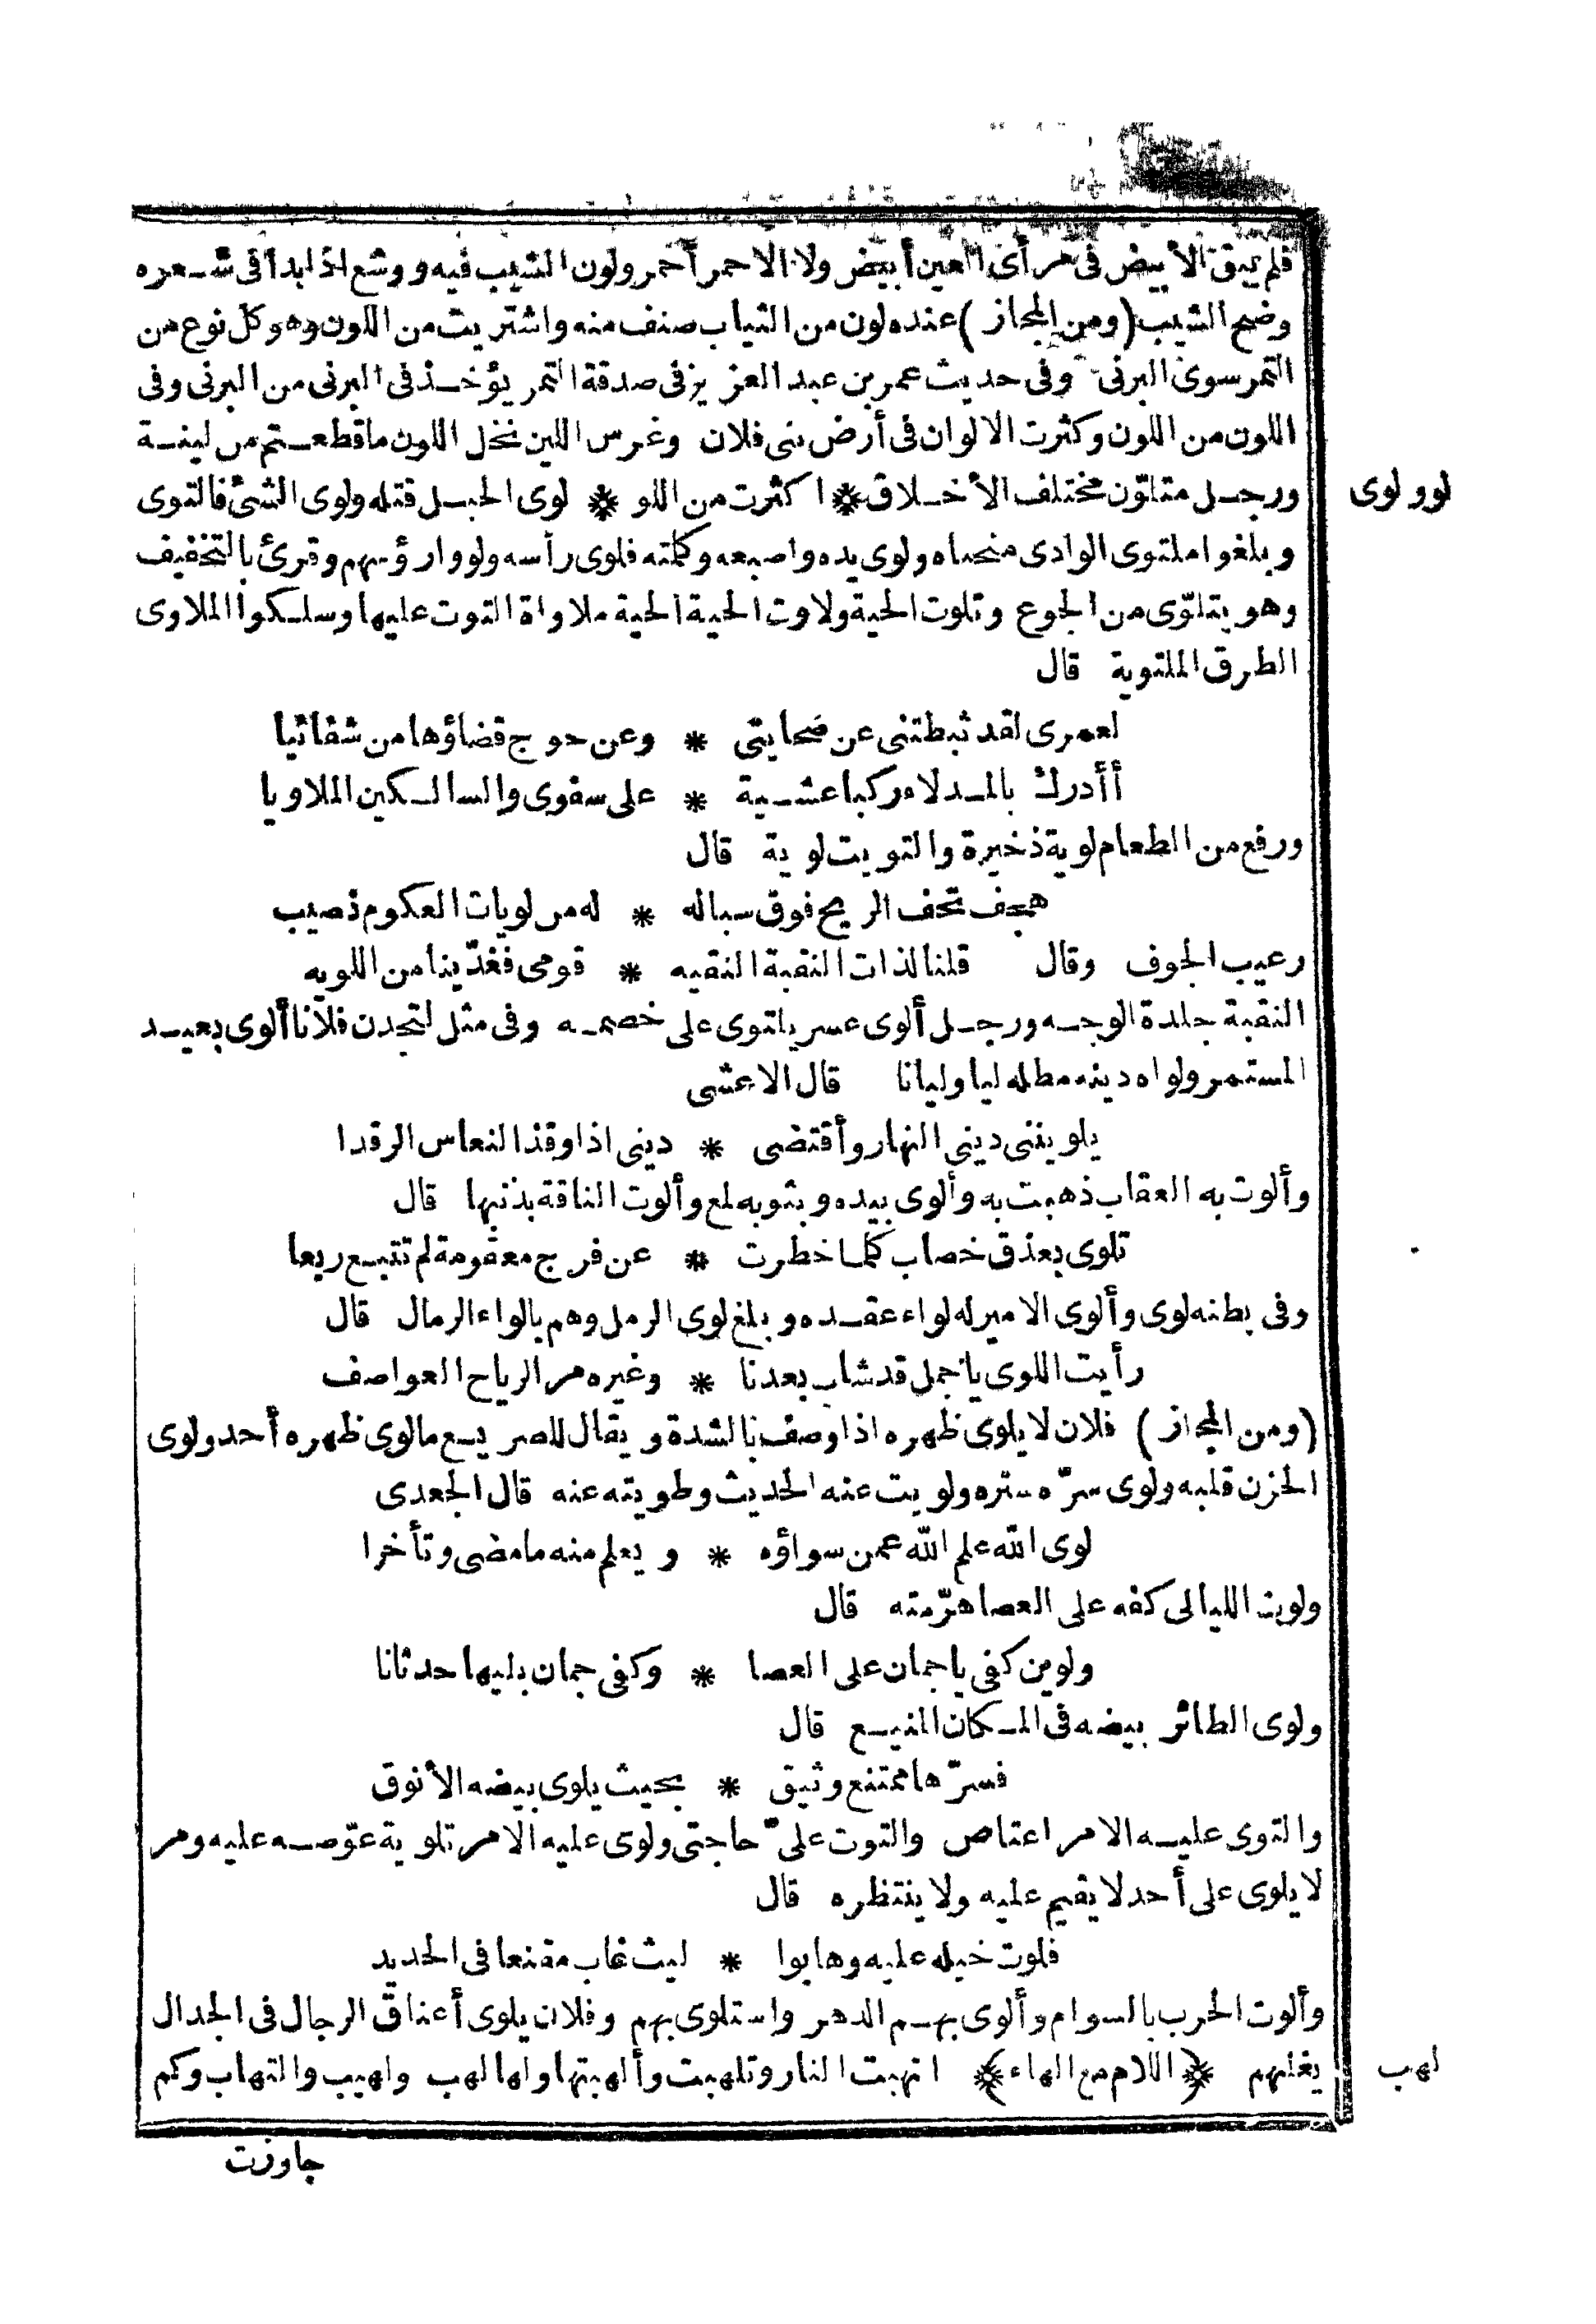 فلم يبق الأبيض فى مرأى العين أبيض ولا الاحمر أحمر ولون الشيب فيه ووشع اذا بدا فى شعره
وضح الشيب (ومن المجاز) عنده لون من الثياب صنف منه واشتريت من اللون وهو كل نوع من
التمر سوى البرنى وفى حديث عمر بن عبد العزيز فى صدقة التمر يؤخذ فى البرنى من البرنى وفى
اللون من اللون وكثرت الالوان فى أرض بنى فلان وغرس اللين نخل اللون ما قطعتم من لينة
لوو لوى
ورجل متلوّن مختلف الأخلاق * اكثرت من اللو * لوى الحبل فتله ولوى الشئ فالتوى
وبلغوا ملتوى الوادى منحناه ولوى يده واصبعه وكلته فلوى رأسه ولووا رؤسهم وقرئ بالتخفيف
وهو يتلوّى من الجوع وتلوت الحية ولاوت الحية الحية ملاواة التوت عليها وسلكوا الملاوى
الطرق الملتوية قال
لعمرى لقد ثبطتنى عن صحابتى * وعن حوج قضاؤها من شفائيا
أأدرك بالمدلاء ركبا عشية * على سفوى والسالكين الملاويا
ورفع من الطعام لوية ذخيرة والتويت لوية قال
هجف تحف الريح فوق سباله * له من لويات العكوم نصيب
رعيب الجوف وقال قلنا لذات النقبة النقيه * قومى فغدّينا من اللويه
النقبة جلدة الوجه ورجل ألوى عسر يلتوى على خصمه وفى مثل لتجدن فلانا ألوى بعيد
المستمر ولواه دينه مطله ليا وليانا قال الاعشى
يلويننى دينى النهار وأقتضى * دينى اذا وقذ النعاس الرقدا
وألوت به العقاب ذهبت به وألوى بيده وبثوبه لمع وألوت الناقة بذنبها قال
تلوى بعذق خصاب كلما خطرت * عن فرج معقومة لم تتبع ربعا
وفى بطنه لوى وألوى الامير له لواء عقده وبلغ لوى الرمل وهم بالواء الرمال قال
رأيت اللوى يا جمل قد شاب بعدنا * وغيره مر الرياح العواصف
(ومن المجاز) فلان لا يلوى ظهره اذا وصف بالشدة ويقال للصريع ما لوى ظهره أحد ولوى
الحزن قلبه ولوى سرّه ستره ولويت عنه الحديث وطويته عنه قال الجعدى
لوى الله علم الله عمن سواؤه * ويعلم منه ما مضى وتأخرا
ولوت الليالى كفه على العصا هرّمته قال
ولوين كفى يا جمان على العصا * وكفى جمان بليها حدثانا
ولوى الطائر بيضه فى المكان المنيع قال
فسرّها ممتنع وثيق * بحيث يلوى بيضه الأنوق
والتوى عليه الامر اعتاص والتوت علىّ حاجتى ولوى عليه الامر تلوية عوّصه عليه ومر
لا يلوى على أحد لا يقيم عليه ولا ينتظره قال
فلوت خيله عليه وهابوا * ليث غاب مقنعا فى الحديد
وألوت الحرب بالسوام وألوى بهم الدهر واستلوى بهم وفلان يلوى أعناق الرجال فى الجدال
لهب
يغلبهم ﴿اللام مع الهاء﴾ التهبت النار وتلهبت وألهبتها ولها لهب ولهيب والتهاب وكم
جاوزت